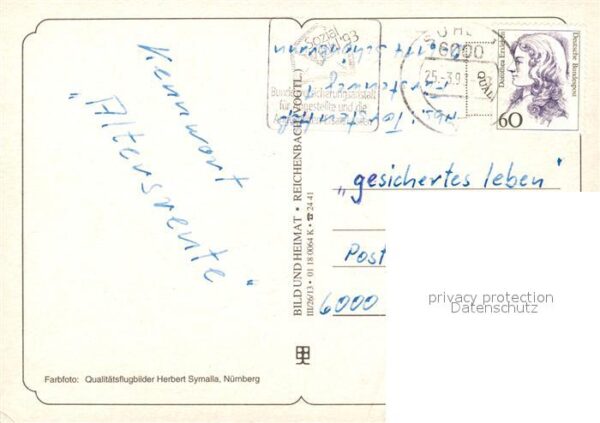 Kennwort
„Altersrente"
Farbfoto: Qualitätsflugbilder Herbert Symalla, Nürnberg
BILD UND HEIMAT • REICHENBACH (VOGTL.)
III/26/13 • 01 18 0064 K • ☎ 24 41
Sozial
93
für Angestellte und die
SUHL
6000
25.-3.9
Dorothea Erxleben
Deutsche Bundespost
60
Abs:
„gesichertes leben"
Post
6000
privacy protection
Datenschutz